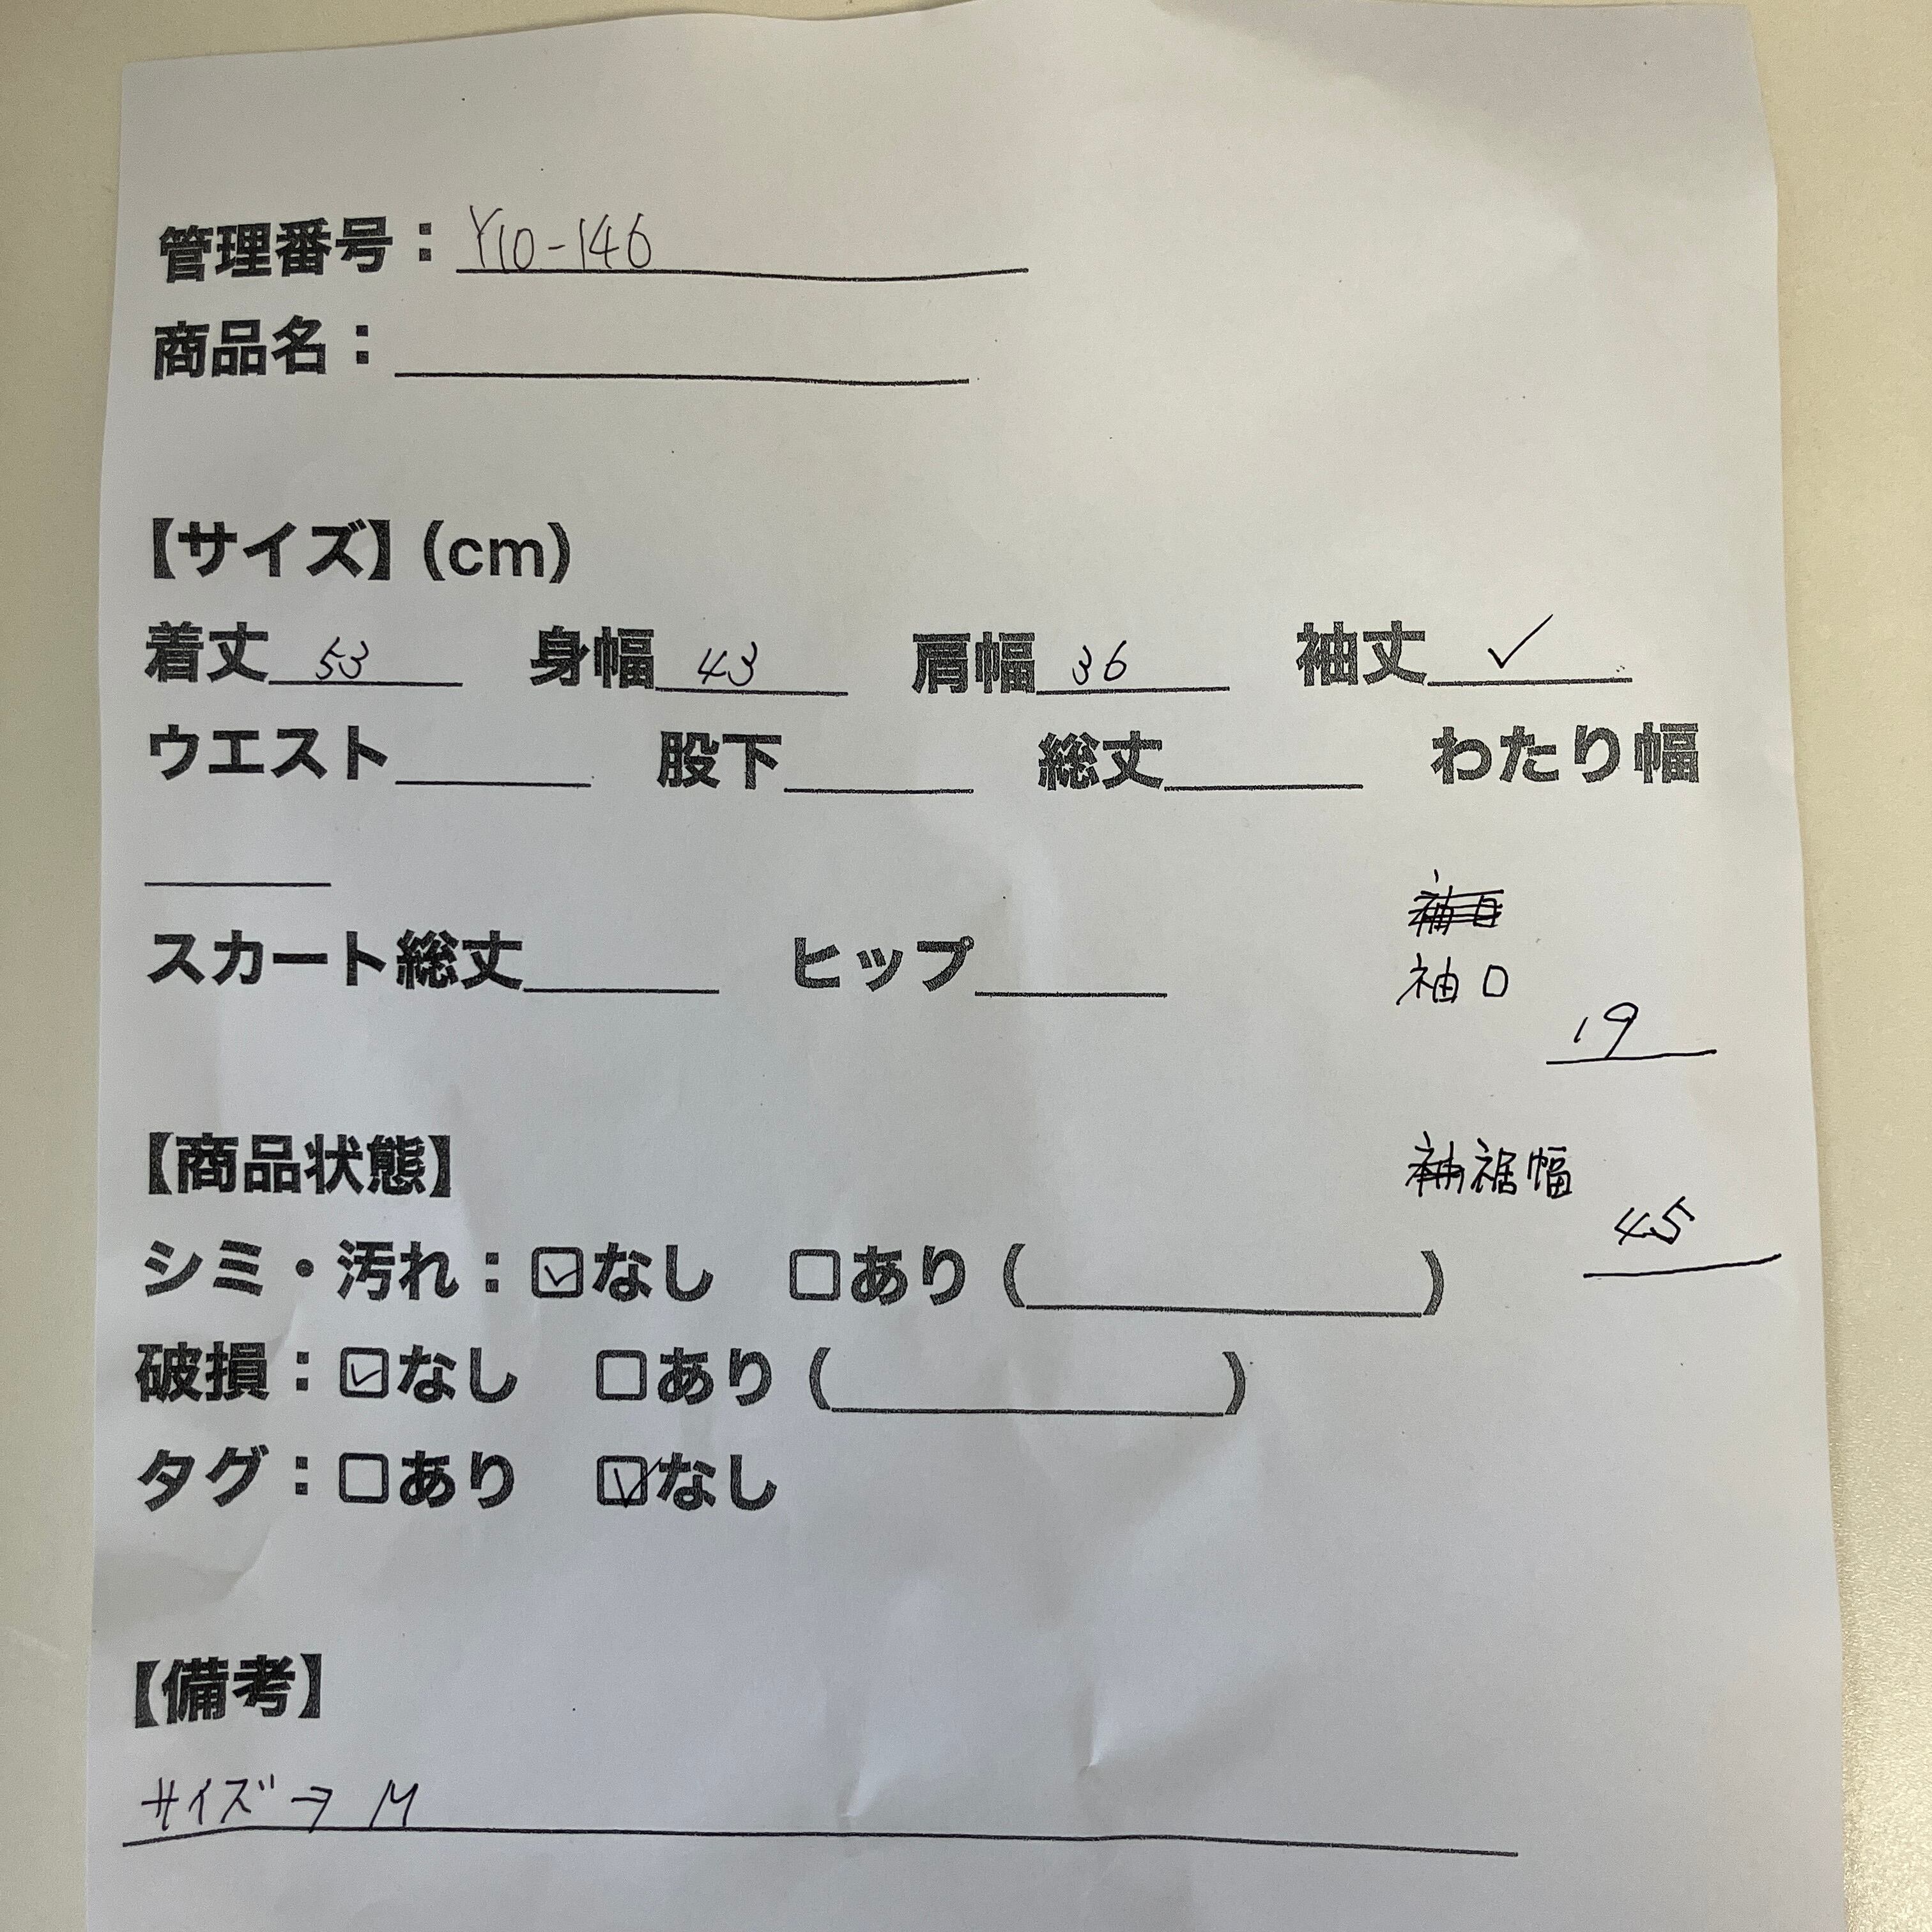 管理番号：Y10-146
商品名：
【サイズ】(cm)
着丈 53 身幅 43 肩幅 36 袖丈 ✓
ウエスト 股下 総丈 わたり幅
スカート総丈 ヒップ
袖口
19
【商品状態】
裾幅
45
シミ・汚れ：☑なし □あり（ ）
破損：☑なし □あり（ ）
タグ：□あり ☑なし
【備考】
サイズ→M